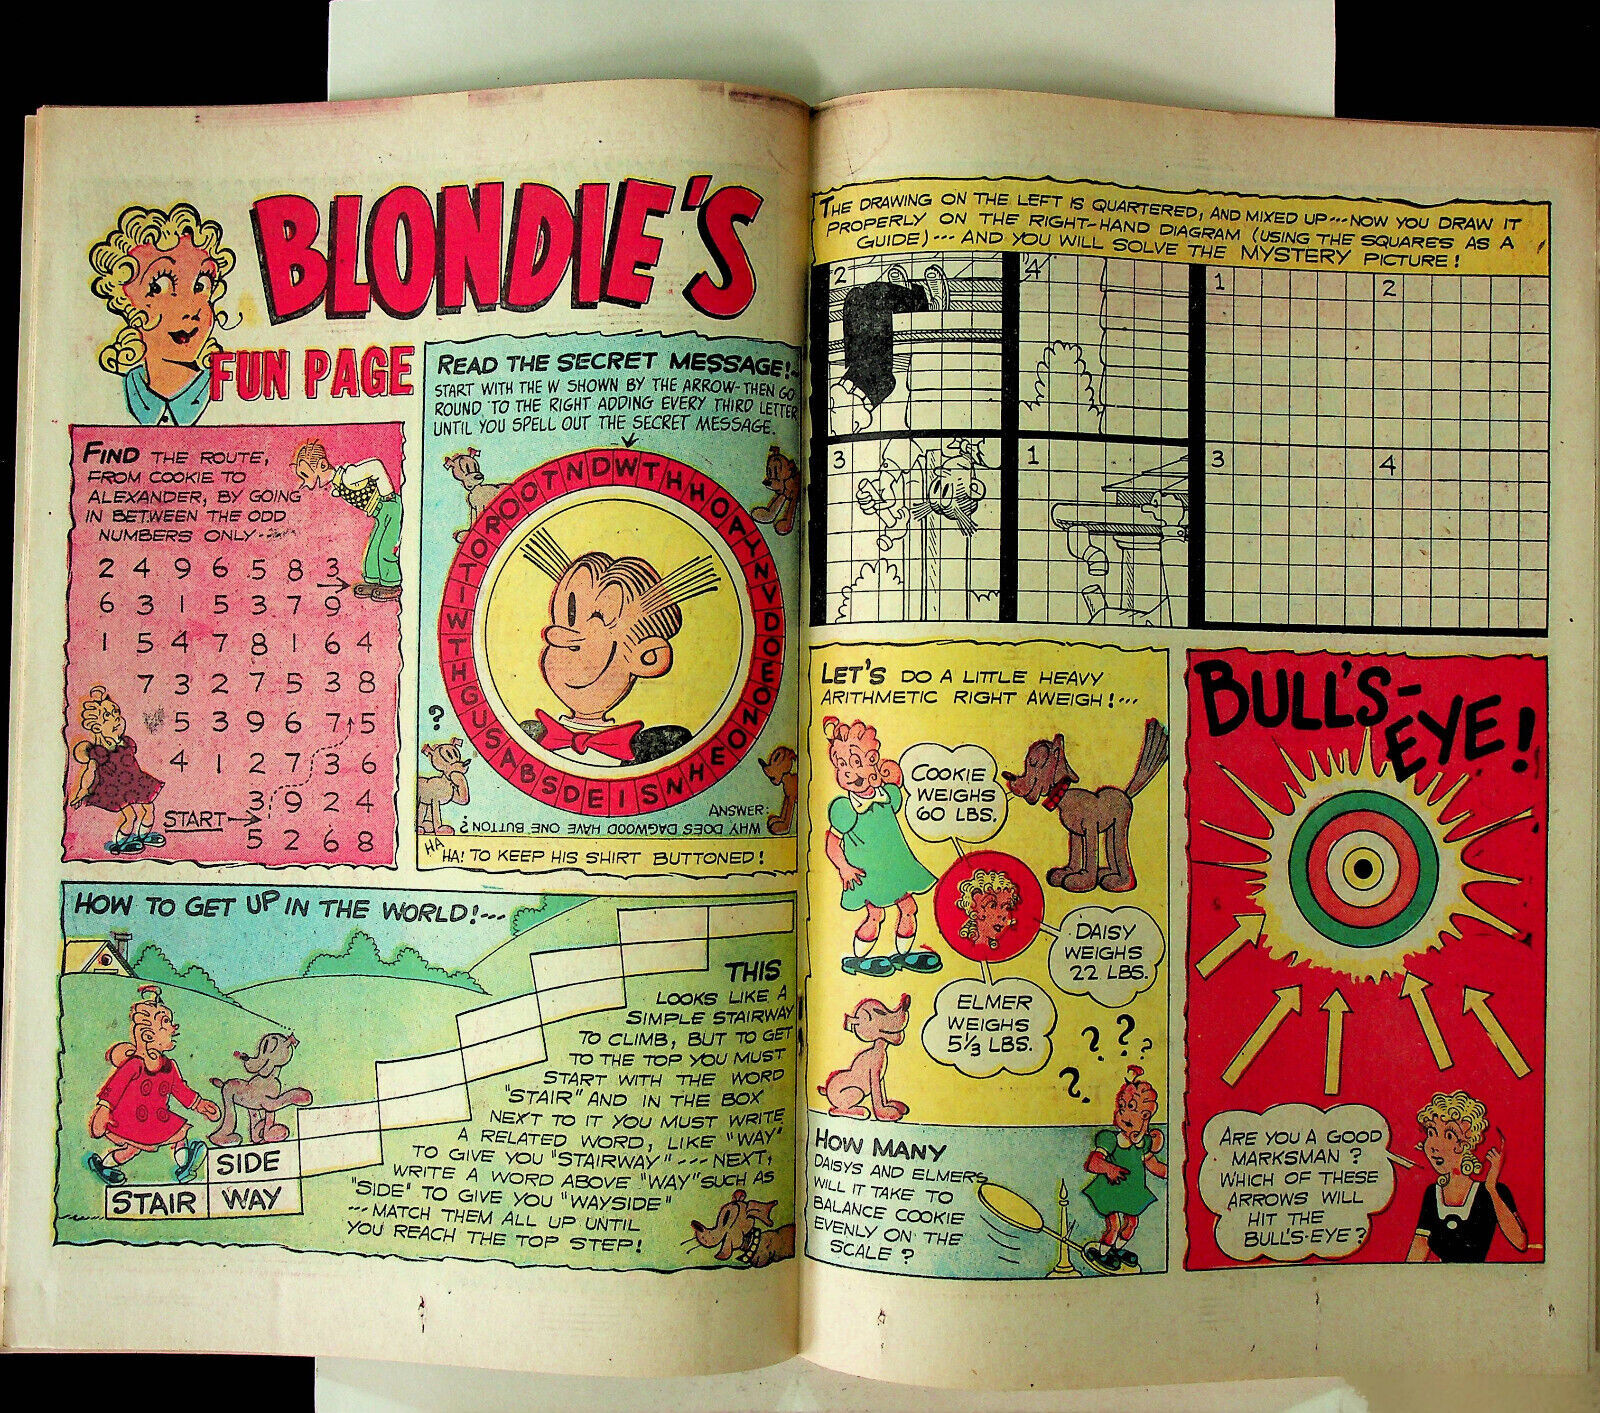 BLONDIE'S
FUN PAGE
FIND THE ROUTE,
FROM COOKIE TO
ALEXANDER, BY GOING
IN BETWEEN THE ODD
NUMBERS ONLY---
2 4 9 6 5 8 3
6 3 1 5 3 7 9
1 5 4 7 8 1 6 4
7 3 2 7 5 3 8
5 3 9 6 7 5
4 1 2 7 3 6
3 9 2 4
START
5 2 6 8
READ THE SECRET MESSAGE!-
START WITH THE W SHOWN BY THE ARROW-THEN GO
ROUND TO THE RIGHT ADDING EVERY THIRD LETTER
UNTIL YOU SPELL OUT THE SECRET MESSAGE.
?
ANSWER:
WHY DOES DAGWOOD HAVE ONE BUTTON?
HA
HA! TO KEEP HIS SHIRT BUTTONED!
HOW TO GET UP IN THE WORLD!---
THIS
LOOKS LIKE A
SIMPLE STAIRWAY
TO CLIMB, BUT TO GET
TO THE TOP YOU MUST
START WITH THE WORD
"STAIR" AND IN THE BOX
NEXT TO IT YOU MUST WRITE
A RELATED WORD, LIKE "WAY"
TO GIVE YOU "STAIRWAY"---NEXT,
WRITE A WORD ABOVE "WAY" SUCH AS
"SIDE" TO GIVE YOU "WAYSIDE"
---MATCH THEM ALL UP UNTIL
YOU REACH THE TOP STEP!
SIDE
STAIR WAY
THE DRAWING ON THE LEFT IS QUARTERED, AND MIXED UP---NOW YOU DRAW IT
PROPERLY ON THE RIGHT-HAND DIAGRAM (USING THE SQUARES AS A
GUIDE)--- AND YOU WILL SOLVE THE MYSTERY PICTURE!
2 4 1 2
3 1 3 4
LET'S DO A LITTLE HEAVY
ARITHMETIC RIGHT AWEIGH!---
COOKIE
WEIGHS
60 LBS.
DAISY
WEIGHS
22 LBS.
ELMER
WEIGHS
5⅓ LBS.
? ? ?
?
HOW MANY
DAISYS AND ELMERS
WILL IT TAKE TO
BALANCE COOKIE
EVENLY ON THE
SCALE?
BULL'S-
EYE!
ARE YOU A GOOD
MARKSMAN?
WHICH OF THESE
ARROWS WILL
HIT THE
BULL'S-EYE?